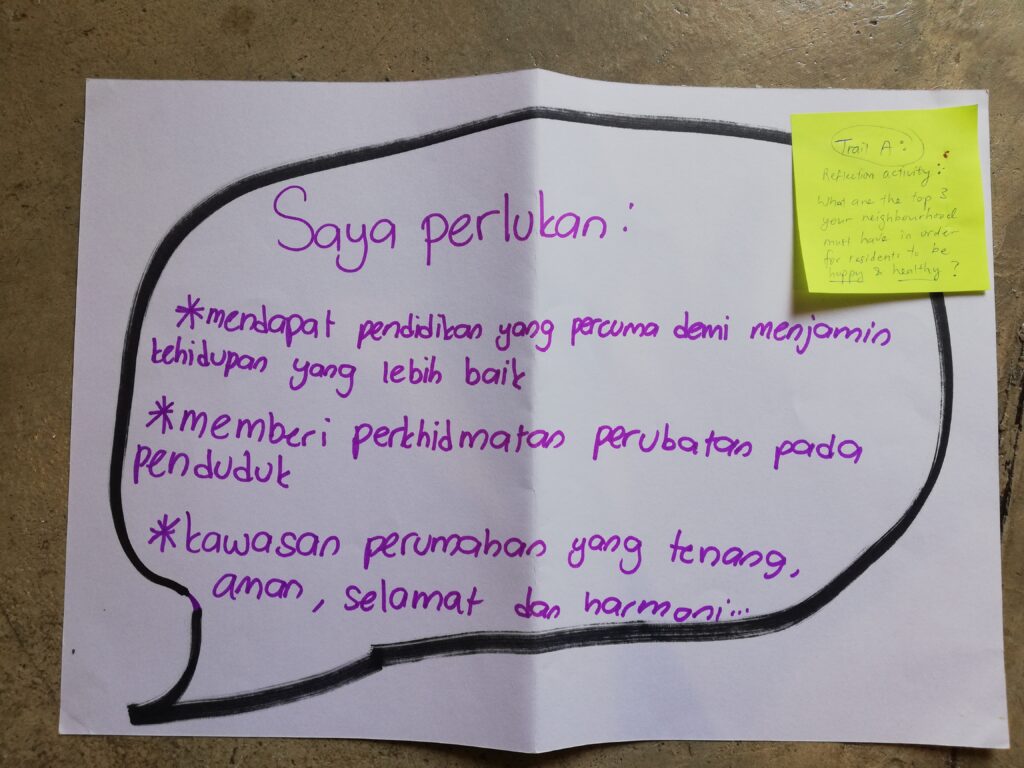 Saya perlukan :
*mendapat pendidikan yang percuma demi menjamin
kehidupan yang lebih baik
*memberi perkhidmatan perubatan pada
penduduk
*kawasan perumahan yang tenang,
aman, selamat dan harmoni...
Trail A :
Reflection activity :
What are the top 3
your neighbourhood
must have in order
for residents to be
happy & healthy ?